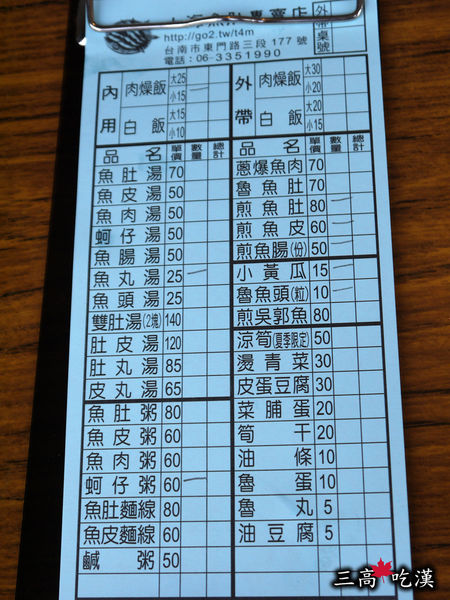 專賣店
http://go2.tw/t4m
台南市東門路三段177號
電話:06-3351990
外帶桌號
內用 肉燥飯 大25 小15
白飯 大15 小10
外帶 肉燥飯 大30 小20
白飯 大20 小15
品名 單價 數量 總計
魚肚湯 70
魚皮湯 50
魚肉湯 50
蚵仔湯 50
魚腸湯 50
魚丸湯 25
魚頭湯 25
雙肚湯(2塊) 140
肚皮湯 120
肚丸湯 85
皮丸湯 65
魚肚粥 80
魚皮粥 60
魚肉粥 60
蚵仔粥 60
魚肚麵線 80
魚皮麵線 60
鹹粥 50
品名 單價 數量 總計
蔥爆魚肉 70
魯魚肚 70
煎魚肚 80
煎魚皮 60
煎魚腸(份) 50
小黃瓜 15
魯魚頭(粒) 10
煎吳郭魚 80
涼筍(夏季限定) 50
燙青菜 30
皮蛋豆腐 30
菜脯蛋 20
筍干 20
油條 10
魯蛋 10
魯丸 5
油豆腐 5
三高吃漢